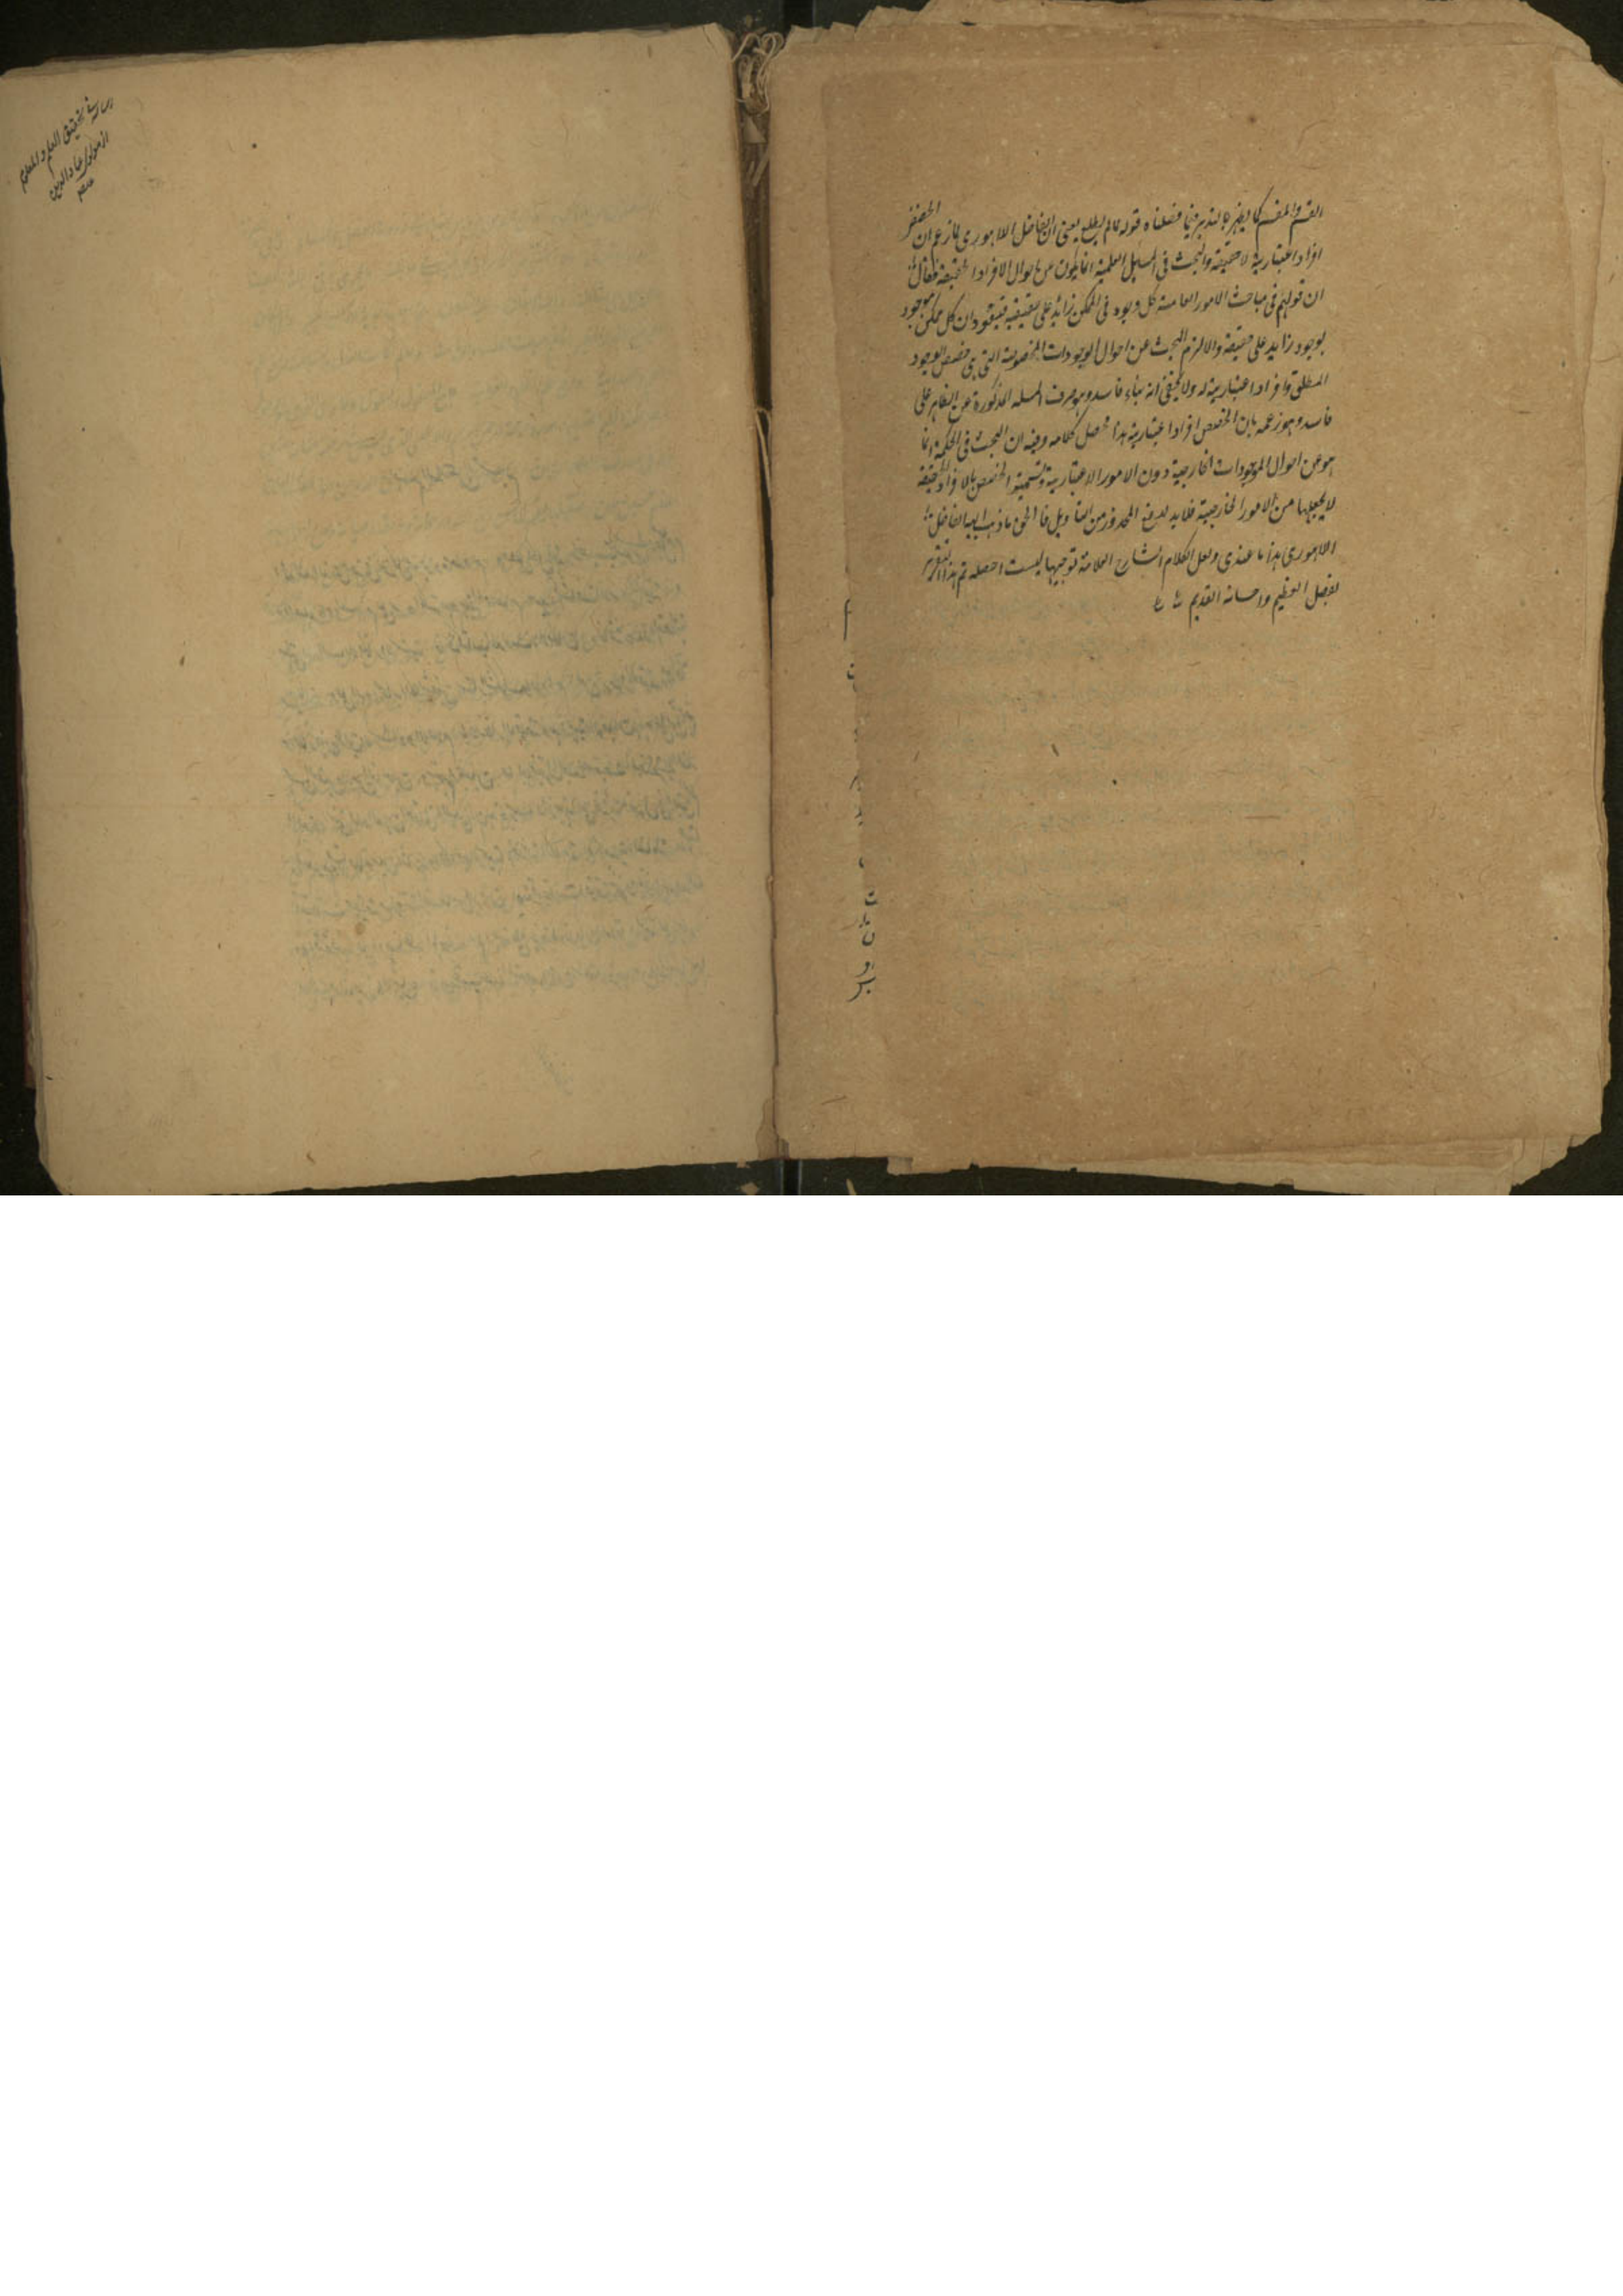 القسم والمقسم كما يظهر بالتدبر فيما فصلناه قوله مالم يطلع يعني ان الفاضل اللاهوري لما زعم ان الحصص
افراد اعتبارية لا حقيقة والبحث في المسائل العلمية انما يكون من احوال الافراد الحقيقة فقال
ان قولهم في مباحث الامور العامة كل وجود في الممكن زائد على حقيقة ان كل ممكن موجود
بوجود زايد على حقيقة والا لزم البحث عن احوال الوجودات المخصوصة التي هي حصص الوجود
المطلق وافراد اعتبارية له ولا يخفى انه بناء فاسد وهو صرف المسئلة المذكورة عن الظاهر على
فاسد وهو زعمه بان الحصص افراد اعتبارية هذا محصل كلامه وفيه ان البحث في الحكمة انما
هو عن احوال الموجودات الخارجية دون الامور الاعتبارية وتسمية الحصص بالافراد الحقيقة
لا يجعلها من الامور الخارجية فلا بد لدفع المحذور من التأويل فالحق ما ذهب اليه الفاضل
اللاهوري هذا ما عندي ولعل لكلام الشارح العلامة توجيها لست احصله تم هذا التقرير
بفضل العظيم واحسانه القديم
رسالة تحقيق العلم والمعلوم
از مولوي عماد الدين